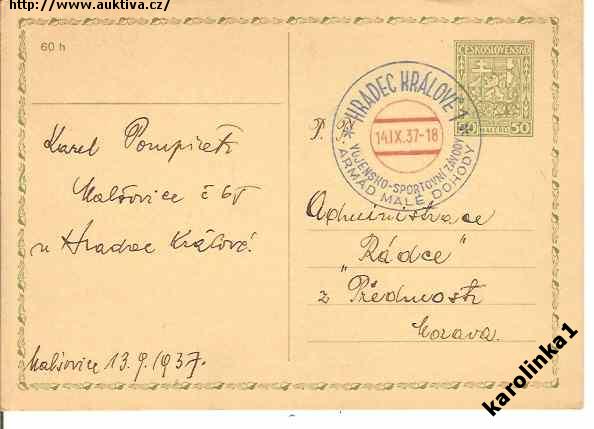 http://www.auktiva.cz/
60 h
ČESKOSLOVENSKO
50 HALÉŘŮ 50
* HRADEC KRÁLOVÉ 1 *
14.IX.37-18
VOJENSKO-SPORTOVNÍ ZÁVODY
ARMÁD MALÉ DOHODY
P. T.
Karel
Malšovice č 65
u Hradce Králové.
Malšovice 13.9.1937.
Administrace
"Rádce"
z Předmostí
Morava.
karolinka1